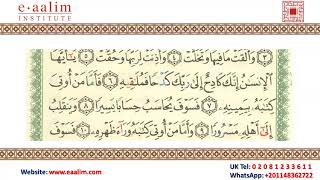 e-aalim
INSTITUTE
٣ وَأَلْقَتْ مَا فِيهَا وَتَخَلَّتْ ٤ وَأَذِنَتْ لِرَبِّهَا وَحُقَّتْ ٥ يَٰٓأَيُّهَا
ٱلْإِنسَٰنُ إِنَّكَ كَادِحٌ إِلَىٰ رَبِّكَ كَدْحًا فَمُلَٰقِيهِ ٦ فَأَمَّا مَنْ أُوتِىَ
كِتَٰبَهُۥ بِيَمِينِهِۦ ٧ فَسَوْفَ يُحَاسَبُ حِسَابًا يَسِيرًا ٨ وَيَنقَلِبُ
إِلَىٰٓ أَهْلِهِۦ مَسْرُورًا ٩ وَأَمَّا مَنْ أُوتِىَ كِتَٰبَهُۥ وَرَآءَ ظَهْرِهِۦ ١٠ فَسَوْفَ
UK Tel: 0 2 0 8 1 2 3 3 6 1 1
Website: www.eaalim.com WhatsApp: +201148362722